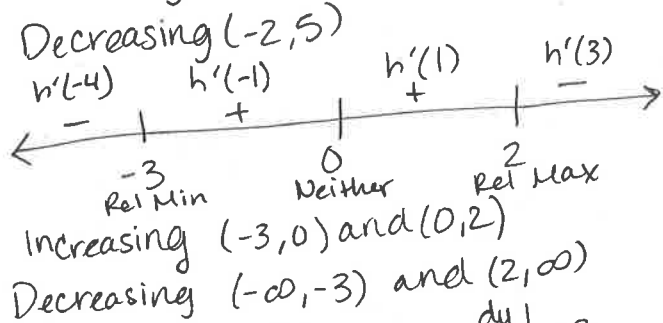 Decreasing (-2,5)
h'(-4) h'(-1) h'(1) h'(3)
- + + -
-3 0 2
Rel Min Neither Rel Max
Increasing (-3,0) and (0,2)
Decreasing (-∞,-3) and (2,∞)